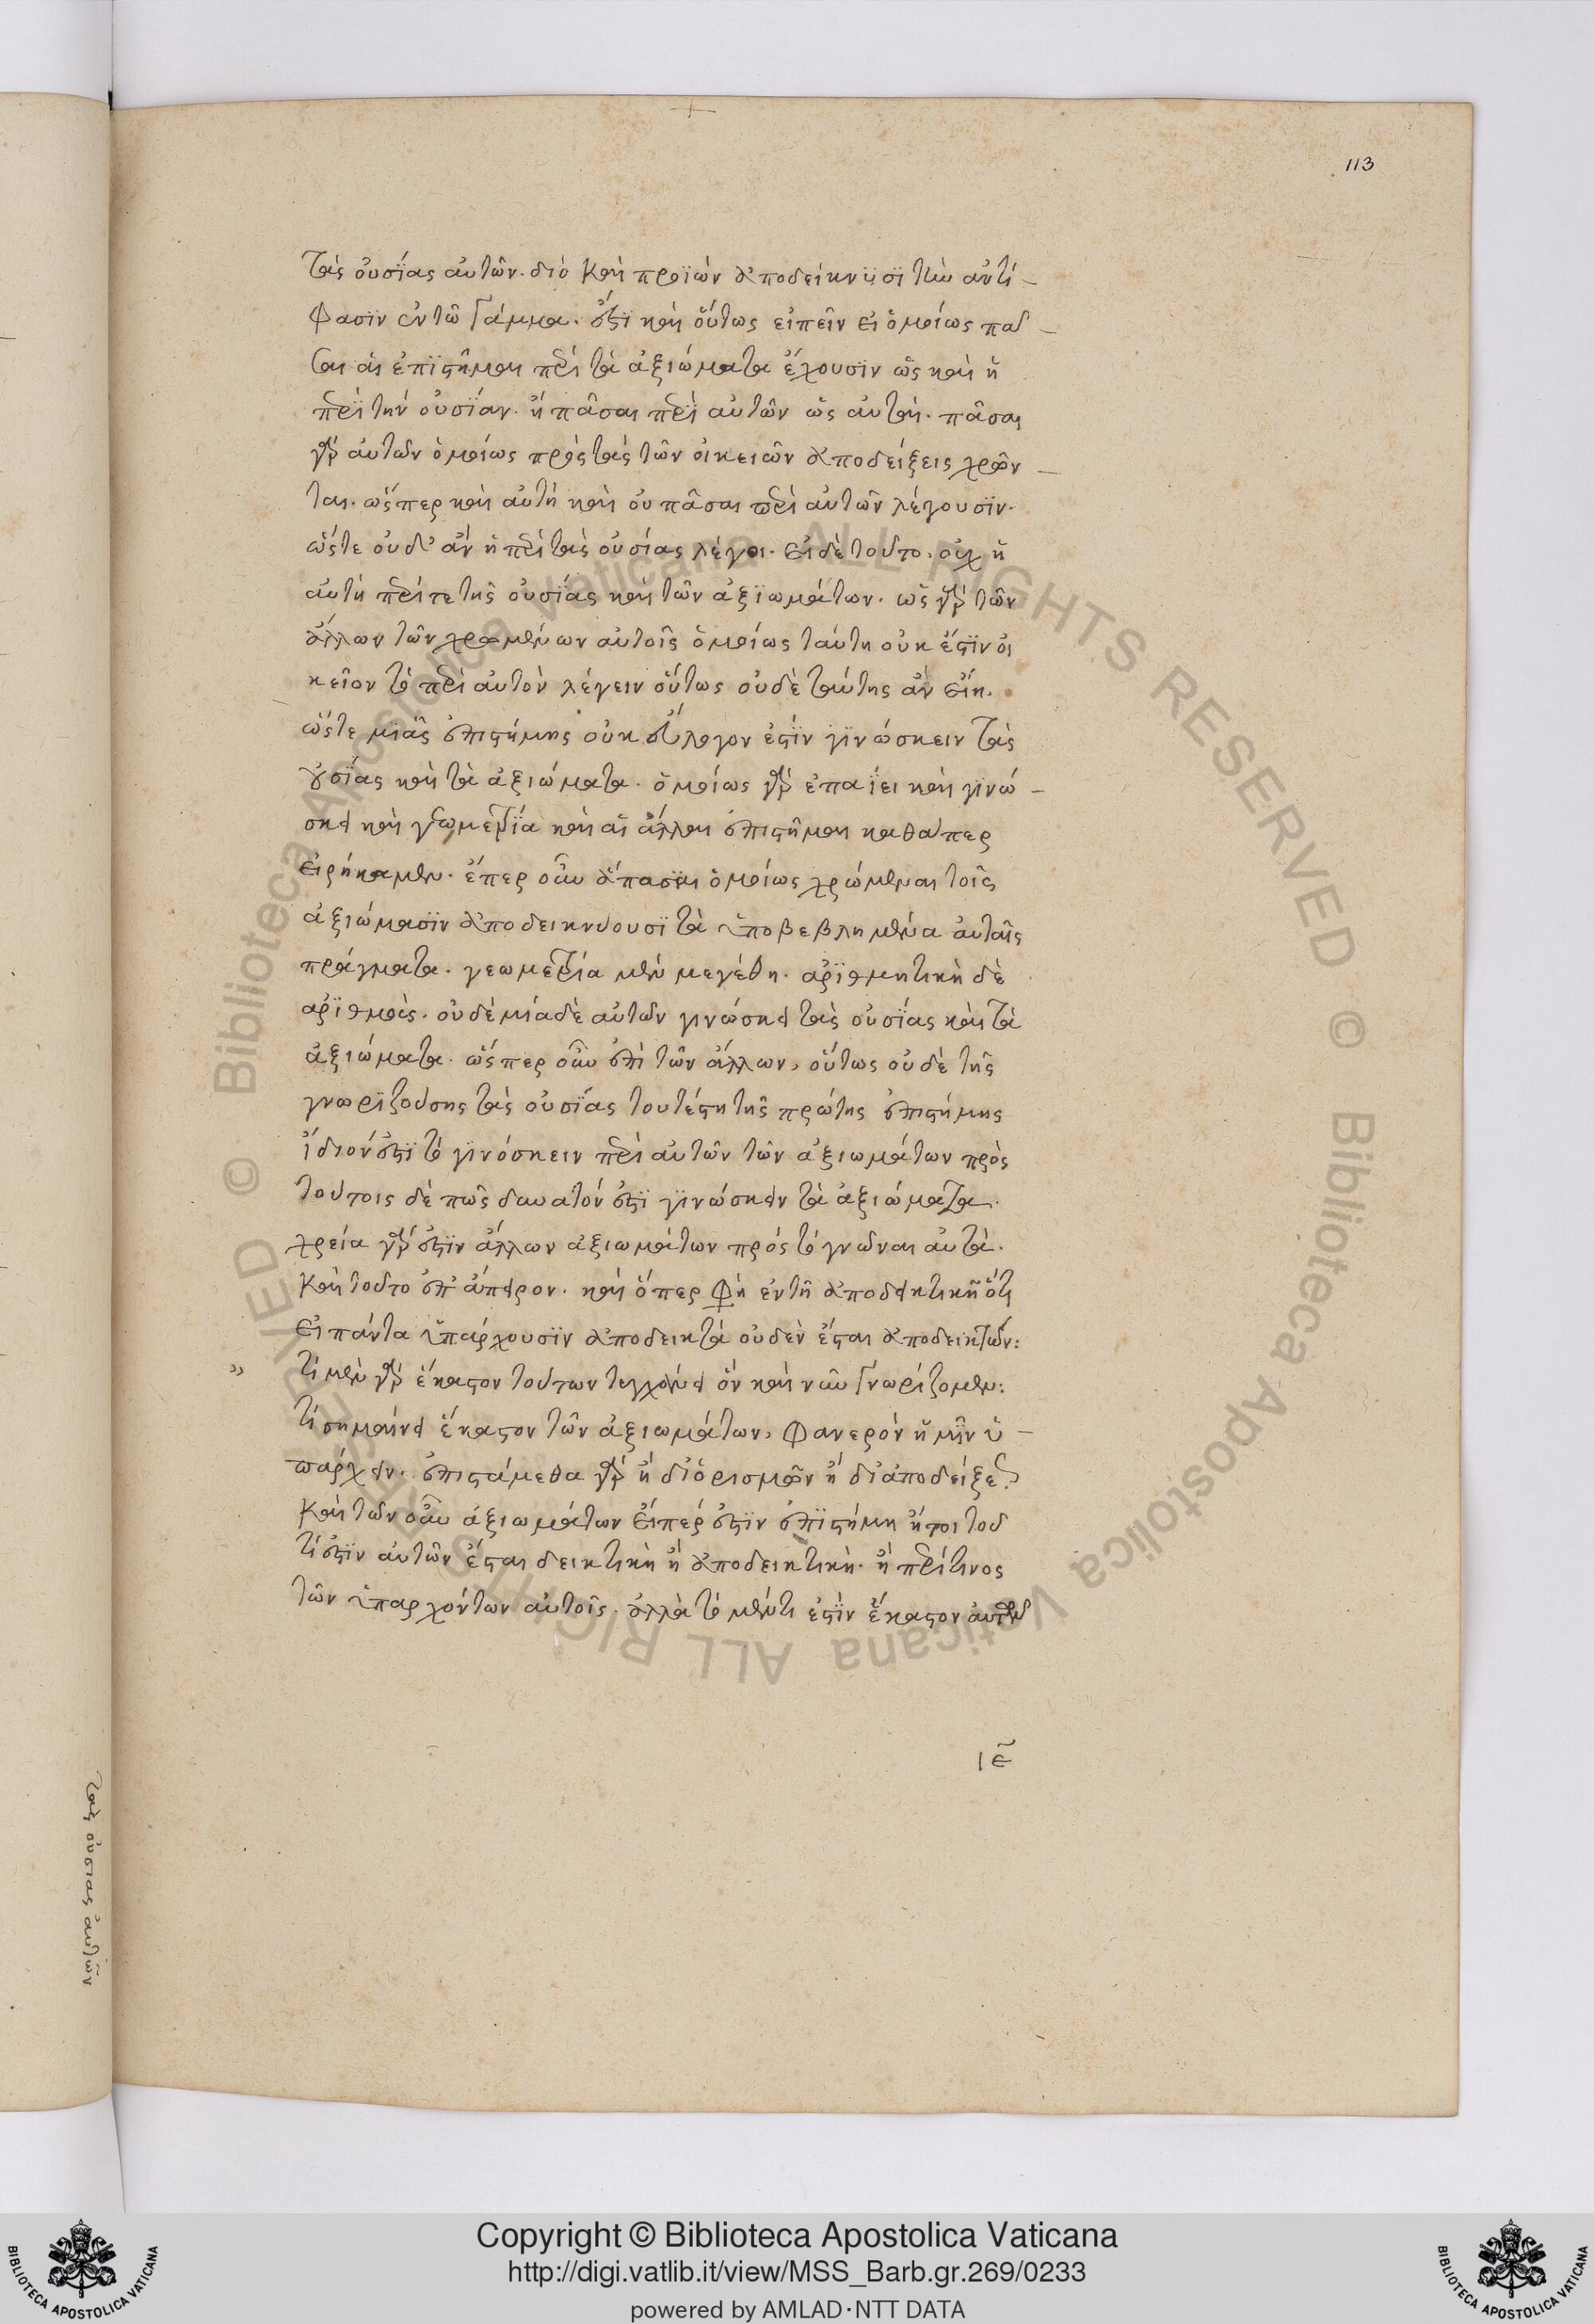 113
τὰς οὐσίας αὐτῶν. διὸ καὶ προϊὼν ἀποδείκνυσι τὴν ἀντί-
φασιν ἐν τῶ Γάμμα. ἔστι καὶ οὕτως εἰπεῖν εἰ ὁμοίως πᾶ-
σαι αἱ ἐπιστῆμαι περὶ τὰ ἀξιώματα ἔχουσιν ὡς καὶ ἡ
περὶ τὴν οὐσίαν. ἢ πᾶσαι περὶ αὐτῶν ὡς αὐταὶ. πᾶσαι
γὰρ αὐτῶν ὁμοίως πρὸς τὰς τῶν οἰκειῶν ἀποδείξεις χρῶν-
ται. ὥσπερ καὶ αὐτὴ καὶ οὐ πᾶσαι περὶ αὐτῶν λέγουσιν.
ὥστε οὐδ' ἂν ἡ περὶ τὰς οὐσίας λέγοι. εἰ δὲ τοῦτο, οὐχ ἡ
αὐτὴ περί τε τῆς οὐσίας καὶ τῶν ἀξιωμάτων. ὡς γὰρ τῶν
ἄλλων τῶν χρωμένων αὐτοῖς ὁμοίως ταύτη οὐκ ἔστιν οἰ
κεῖον τὸ περὶ αὐτὸν λέγειν οὕτως οὐδὲ ταύτης ἂν εἴη.
ὥστε μιᾶς ἐπιστήμης οὐκ εὔλογον ἐστὶν γινώσκειν τὰς
οὐσίας καὶ τὰ ἀξιώματα. ὁμοίως γὰρ ἐπαΐει καὶ γινώ-
σκει καὶ γεωμετρία καὶ αἱ ἄλλαι ἐπιστῆμαι καθάπερ
εἰρήκαμεν. ἔπερ οὖν ἅπασαι ὁμοίως χρώμεναι τοῖς
ἀξιώμασιν ἀποδεικνύουσι τὰ ὑποβεβλημένα αὐταῖς
πράγματα. γεωμετρία μὲν μεγέθη. ἀριθμητικὴ δὲ
ἀριθμοὺς. οὐδὲ μία δὲ αὐτῶν γινώσκει τὰς οὐσίας καὶ τὰ
ἀξιώματα. ὥσπερ οὖν ἐπὶ τῶν ἄλλων, οὕτως οὐδὲ τῆς
γνωριζούσης τὰς οὐσίας τουτέστι τῆς πρώτης ἐπιστήμης
ἴδιόν ἐστι τὸ γινόσκειν περὶ αὐτῶν τῶν ἀξιωμάτων πρὸς
τούτοις δὲ πῶς δυνατόν ἐστι γινώσκειν τὰ ἀξιώματα.
χρεία γάρ ἐστιν ἄλλων ἀξιωμάτων πρὸς τὸ γνῶναι αὐτὰ.
καὶ τοῦτο ἐπ' ἄπειρον. καὶ ὅπερ φὴ ἐν τῇ ἀποδεικτικῇ ὅτι
εἰ πάντα ὑπάρχουσιν ἀποδεικτὰ οὐδὲν ἔσται ἀποδεικτῶν:
» τί μὲν γὰρ ἕκαστον τούτων τυγχάνει ὂν καὶ νῦν Γνωρίζομεν:
τί σημαίνει ἕκαστον τῶν ἀξιωμάτων, φανερὸν ἡμῖν ὑ-
πάρχειν. ἐπιστάμεθα γὰρ ἢ δι' ὁρισμῶν ἢ δι' ἀποδείξεων
καὶ τῶν οὖν ἀξιωμάτων εἴπερ ἐστὶν ἐπιστήμη ἤτοι τοῦ
τί ἐστιν αὐτῶν ἔσται δεικτικὴ ἢ ἀποδεικτικὴ. ἢ περί τινος
τῶν ὑπαρχόντων αὐτοῖς. ἀλλὰ τὸ μὲν τί ἐστὶν ἕκαστον αὐτῶν
ιε
τὰς οὐσίας αὐτῶν
Copyright © Biblioteca Apostolica Vaticana
http://digi.vatlib.it/view/MSS_Barb.gr.269/0233
powered by AMLAD·NTT DATA
BIBLIOTECA APOSTOLICA VATICANA
BIBLIOTECA APOSTOLICA VATICANA
© Biblioteca Apostolica Vaticana ALL RIGHTS RESERVED © Biblioteca Apostolica Vaticana ALL RIGHTS RESERVED